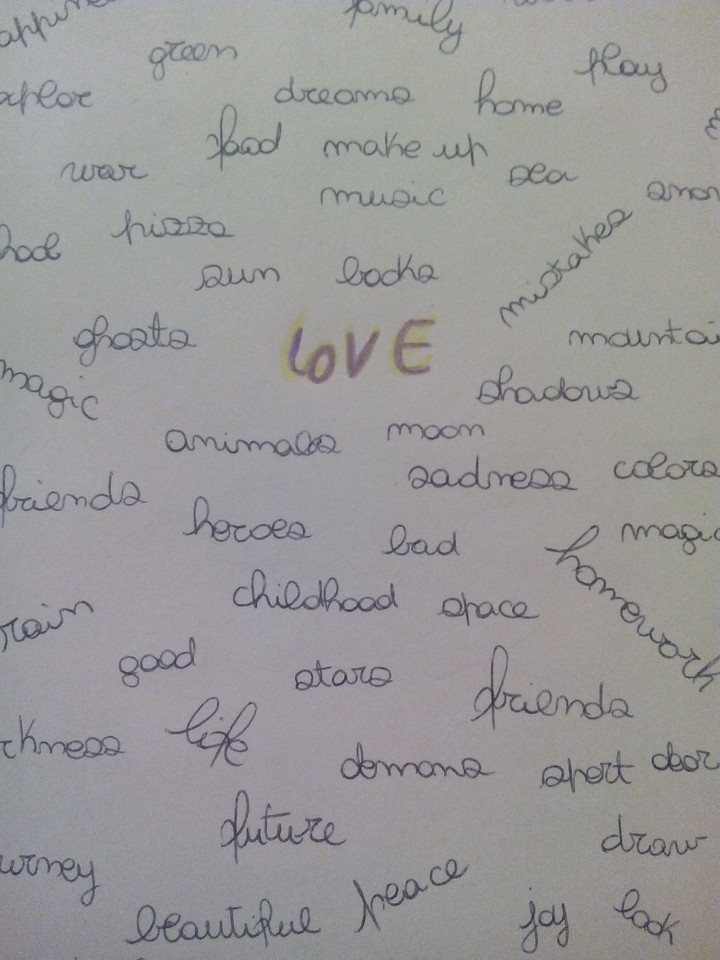 family
green
play
dreams
home
food
make up
war
sea
music
pizza
mistakes
sun
books
ghosts
LOVE
magic
shadows
animals
moon
sadness
colors
friends
heroes
bad
magic
homework
childhood
space
rain
good
stars
friends
life
demons
sport
future
draw
peace
beautiful
joy
look